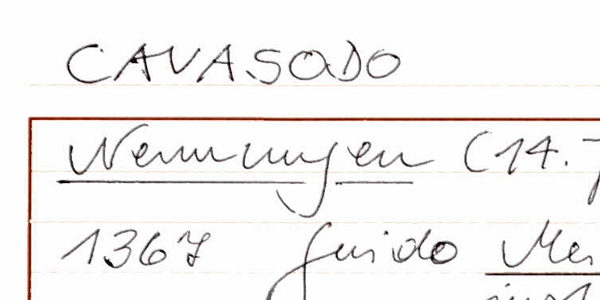 CAVASODO
Nennungen (14.
1367 Guido